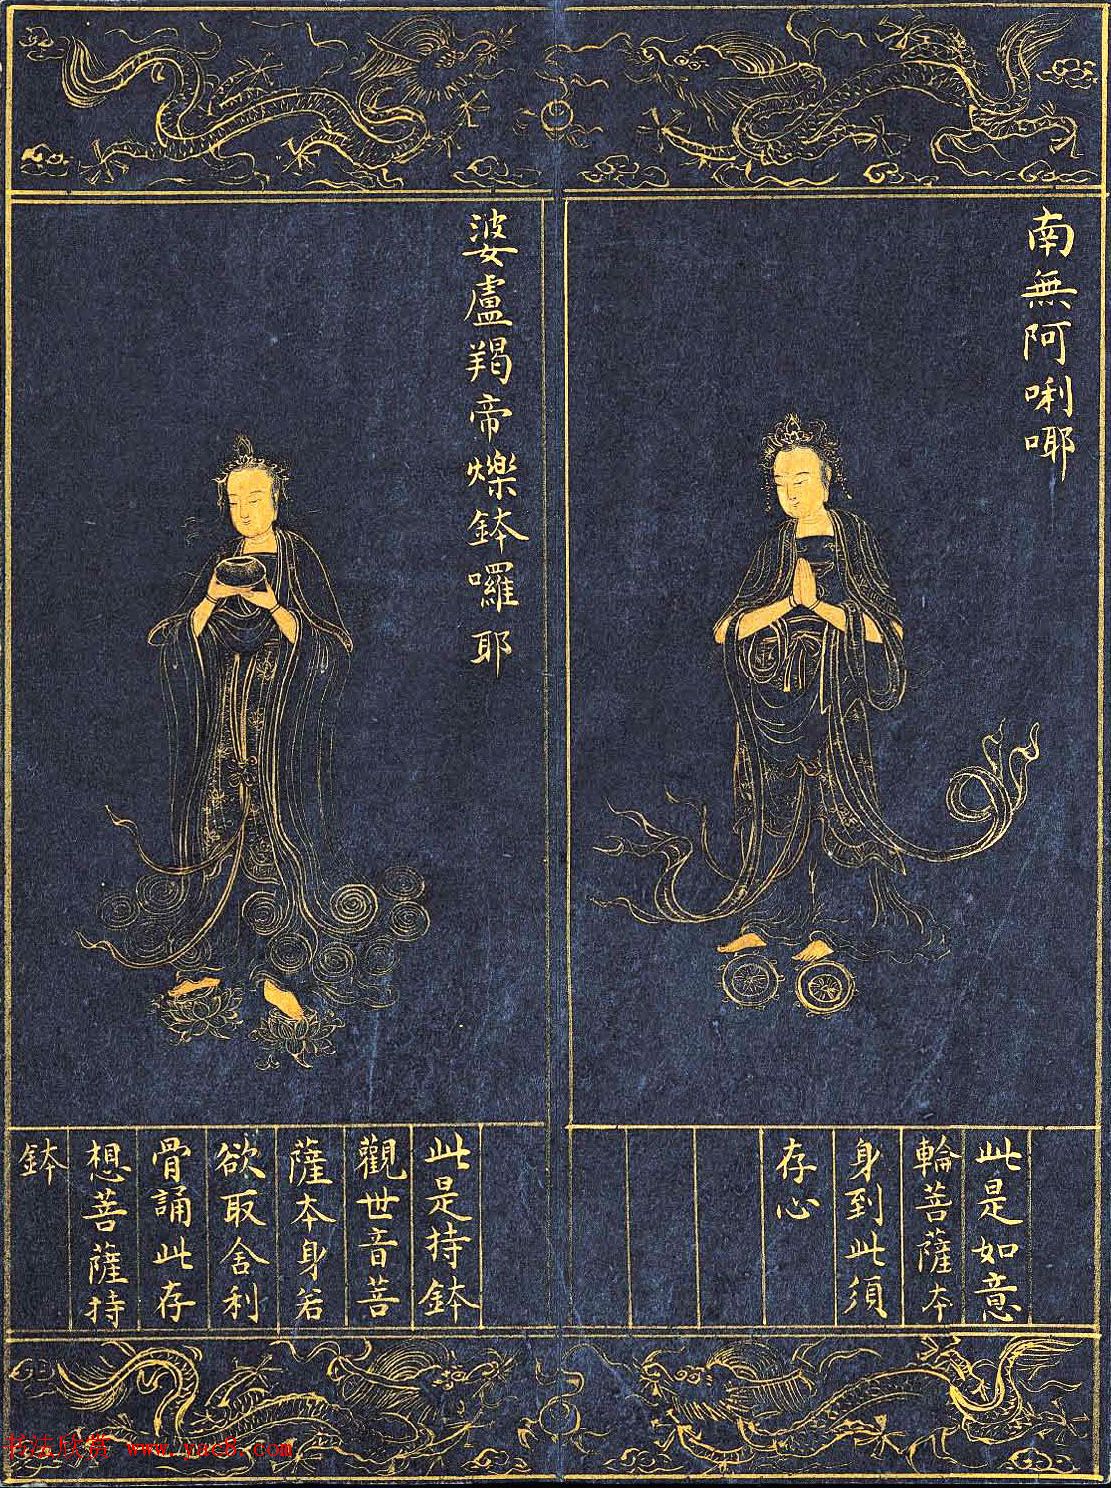 南無阿唎哪
此是如意
輪菩薩本
身到此須
存心
婆盧羯帝爍鉢囉耶
此是持鉢
觀世音菩
薩本身若
欲取舍利
骨誦此存
想菩薩持
鉢
书法欣赏 www.yac8.com